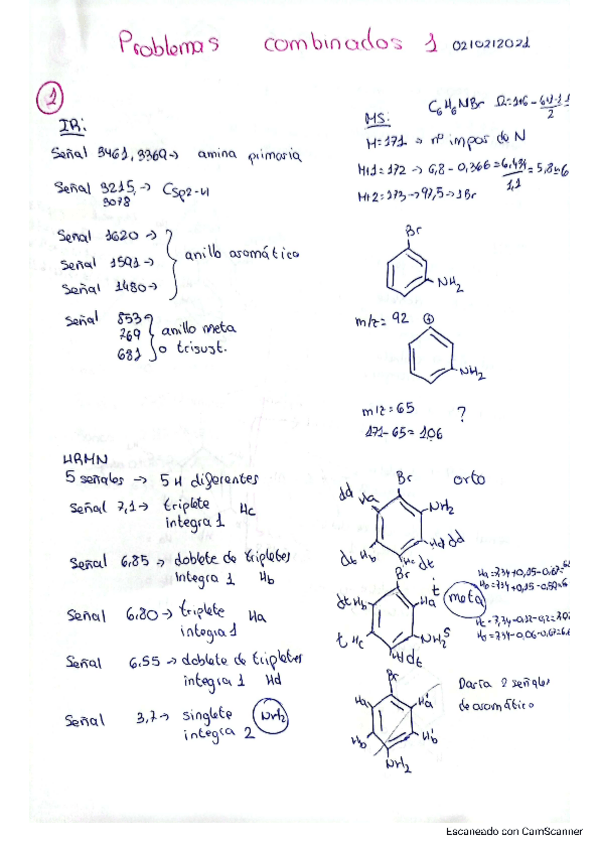 Problemas combinados 1 02/02/2021
1
IR:
Señal 3461, 3369 → amina primaria
Señal 3215, → Csp2-H
3078
Señal 1620 →
Señal 1591 → anillo aromático
Señal 1480 →
Señal 853
769 anillo meta
681 o trisust.
MS:
C6H6NBr
M=171 → nº impar de N
M+1=172 → 6,8-0,366=6,434 = 5,8≈6
1,1
M+2=173 → 97,5 → 1Br
Br
NH2
m/z= 92 +
NH2
m/z=65 ?
171-65=106
HRMN
5 señales → 5 H diferentes
Señal 7,1 → triplete Hc
integra 1
Señal 6,85 → doblete de tripletes
integra 1 Hb
Señal 6,80 → triplete Ha
integra 1
Señal 6,55 → doblete de tripletes
integra 1 Hd
Señal 3,7 → singlete NH2
integra 2
Br orto
dd Ha NH2
dt Hb Hd dd
Hc dt
Br t
dt Hb Ha meta
t Hc NH2 s
Hd dt
Br
Ha Ha'
Hb Hb'
NH2
Daría 2 señales
de aromático
Escaneado con CamScanner